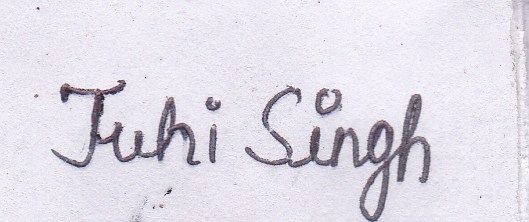 Juhi Singh